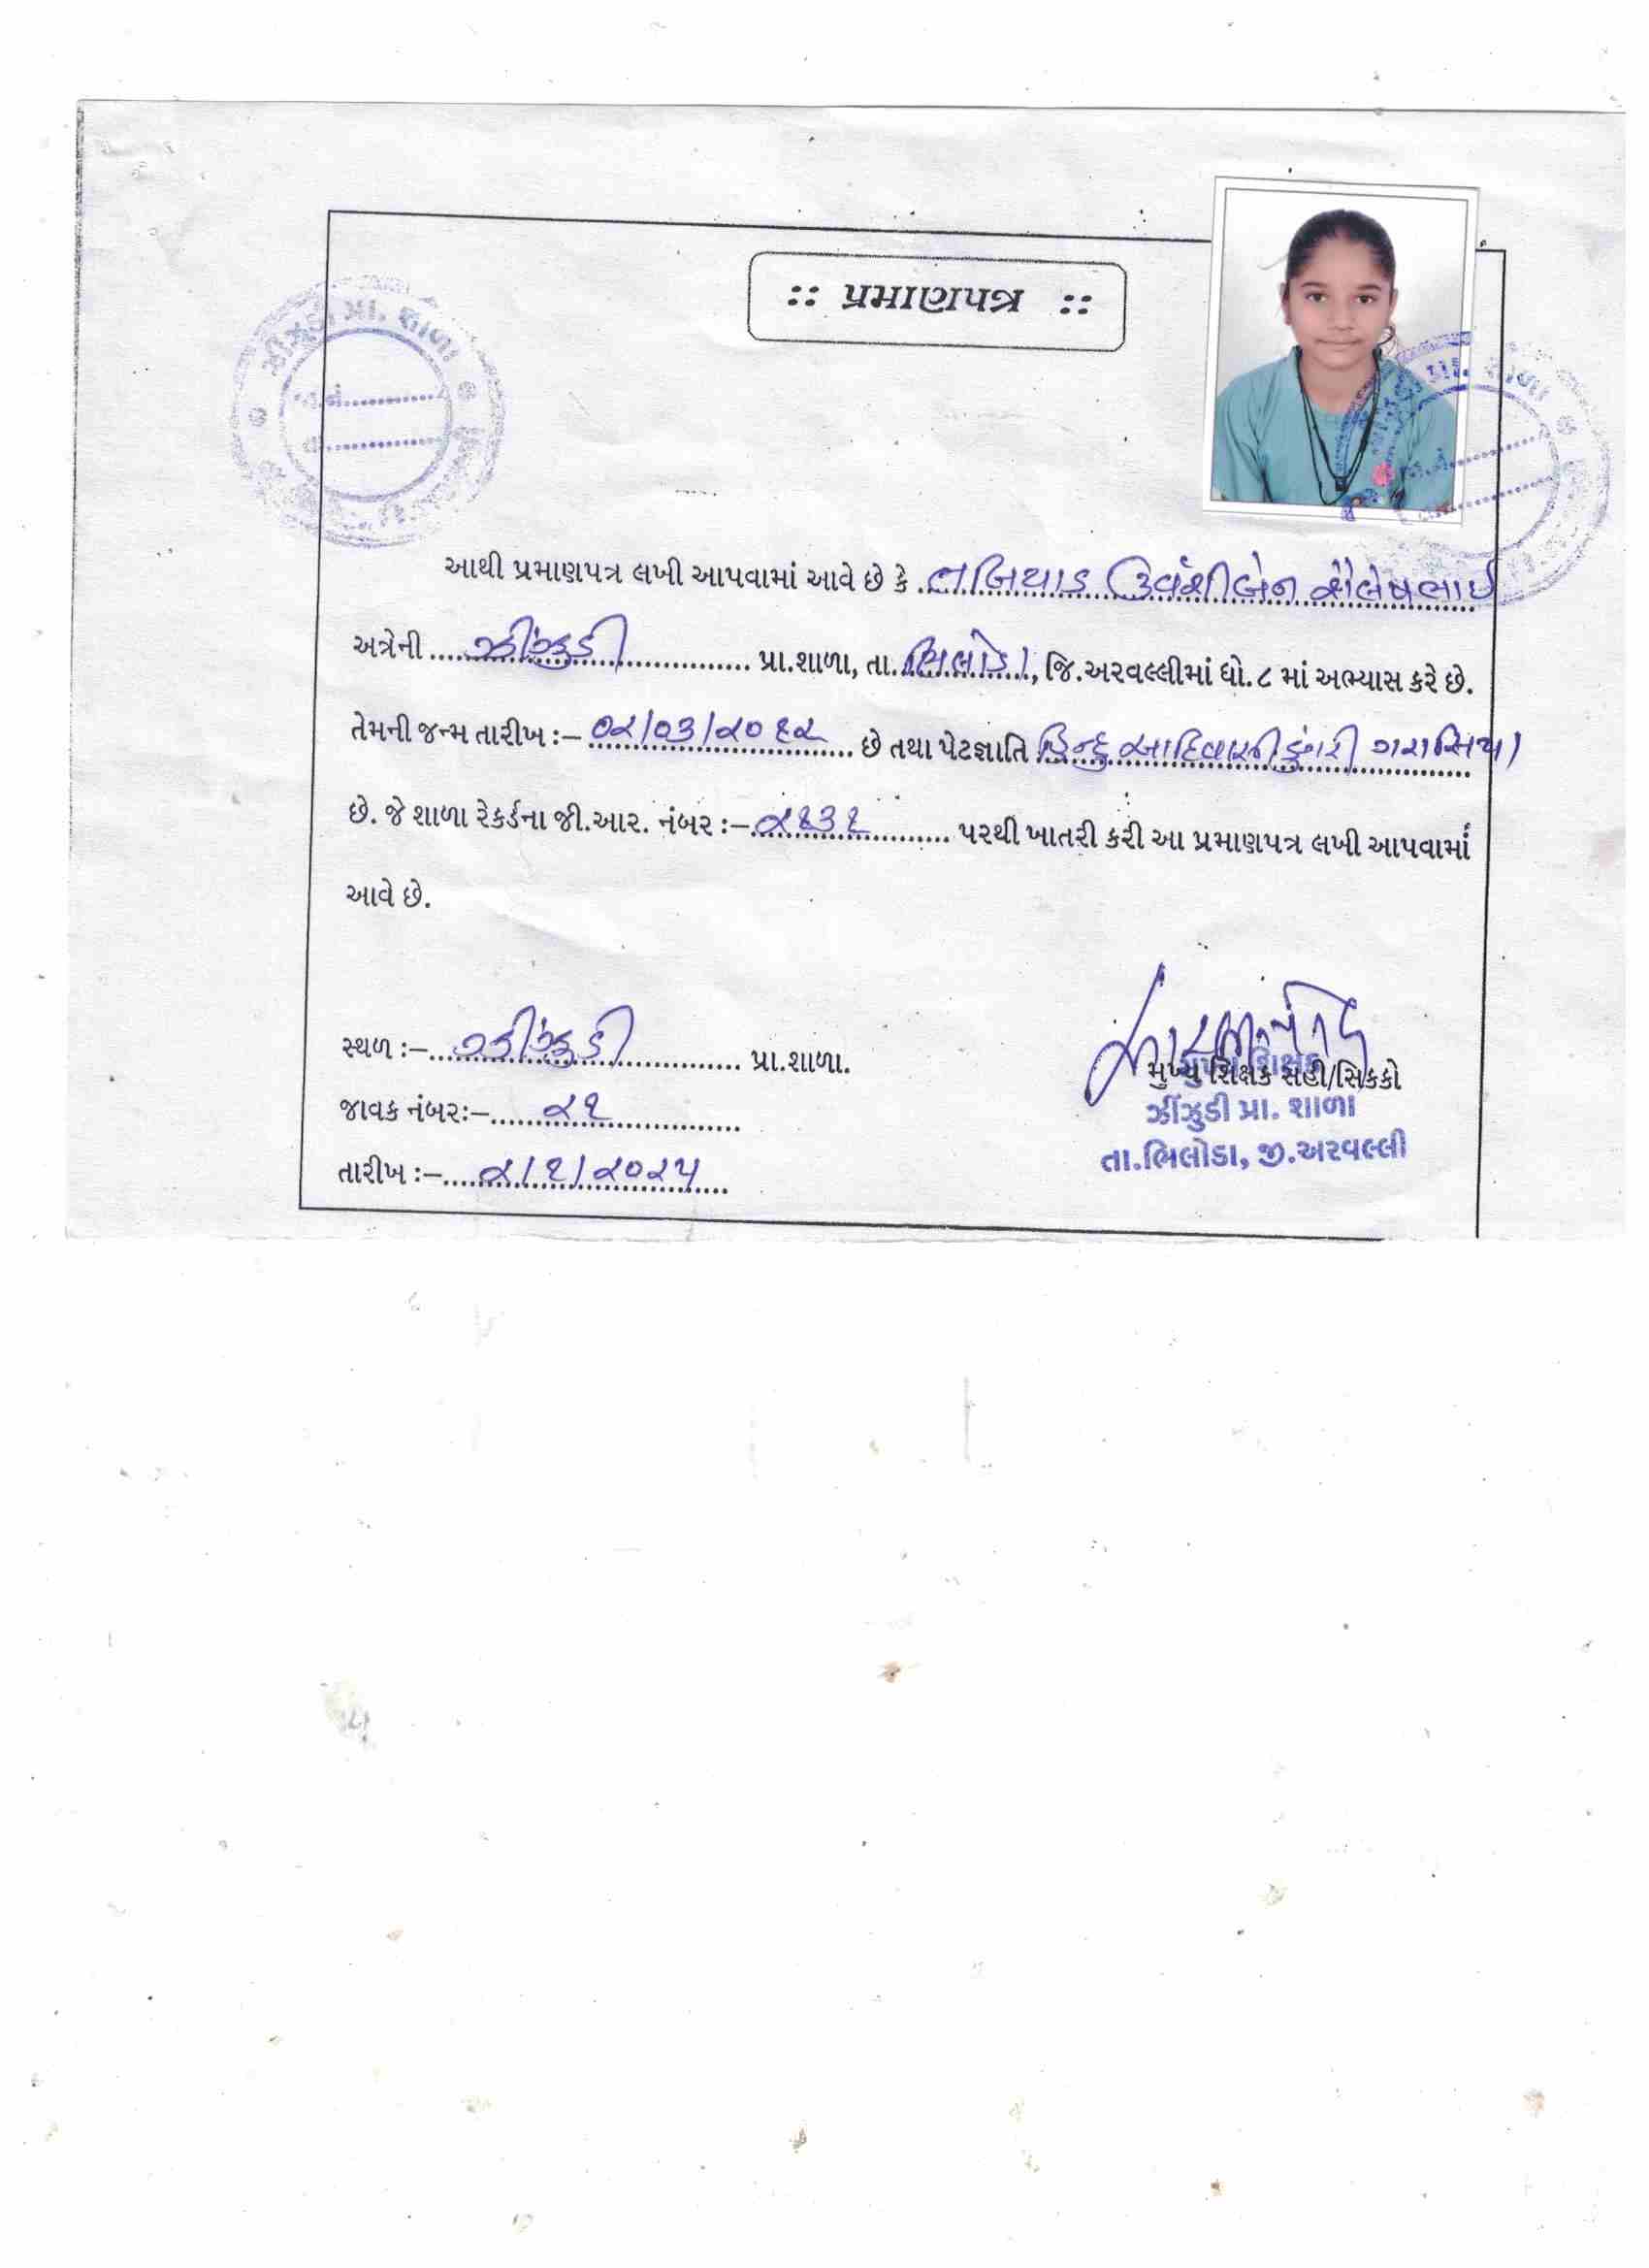 :: પ્રમાણપત્ર ::
આથી પ્રમાણપત્ર લખી આપવામાં આવે છે કે ઉર્વશીબેન શૈલેષભાઈ
અત્રેની ઝીંઝુડી પ્રા.શાળા, તા. ભિલોડા, જિ.અરવલ્લીમાં ધો.૮ માં અભ્યાસ કરે છે.
તેમની જન્મ તારીખ :– ૦૨/૦૩/૨૦૧૨ છે તથા પેટજ્ઞાતિ હિન્દુ આદિવાસી ડુંગરી ગરાસિયા
છે. જે શાળા રેકર્ડના જી.આર. નંબર :– ૨૧૩૧ પરથી ખાતરી કરી આ પ્રમાણપત્ર લખી આપવામાં
આવે છે.
સ્થળ :– ઝીંઝુડી પ્રા.શાળા.
જાવક નંબર:– ૨૧
તારીખ :– ૨/૧/૨૦૨૫
મુખ્ય શિક્ષક
મુખ્ય શિક્ષક સહી/સિક્કો
ઝીંઝુડી પ્રા. શાળા
તા.ભિલોડા, જી.અરવલ્લી